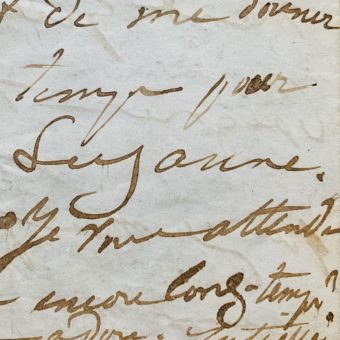 de me donner
temps pour
Suzanne.
Je vous attends
encore long-temps?
adore.